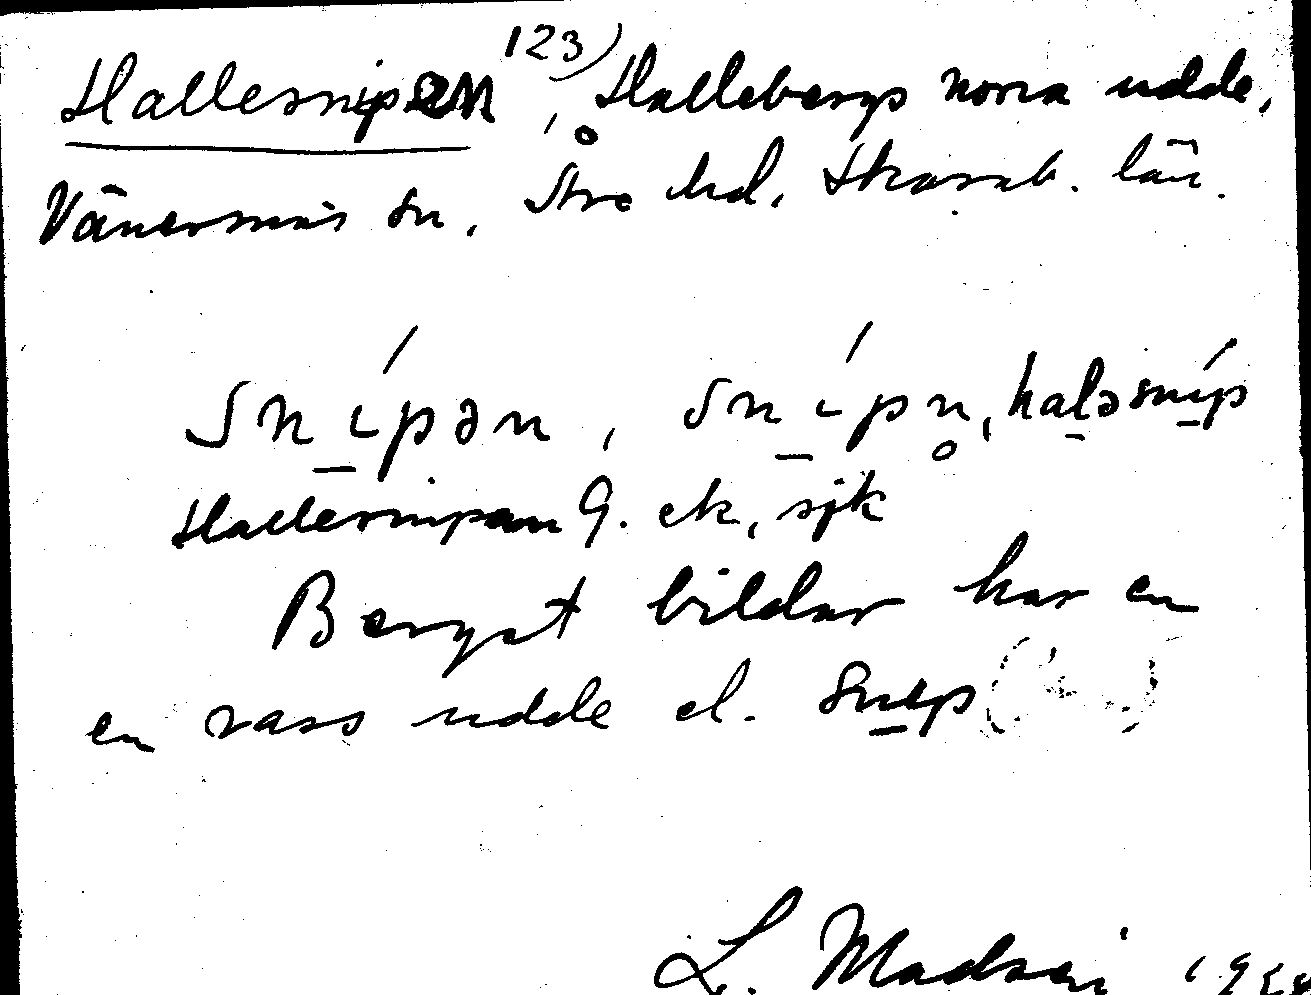 Hallesnipen 123), Hallebergs norra udde,
Vänersnäs sn, Åse hd, Skarab. län.
snípən, snípn̥, haləsníp
Hallesnipan G. ek, sjk
Berget bildar här en
en vass udde el. snip
L. Madsén